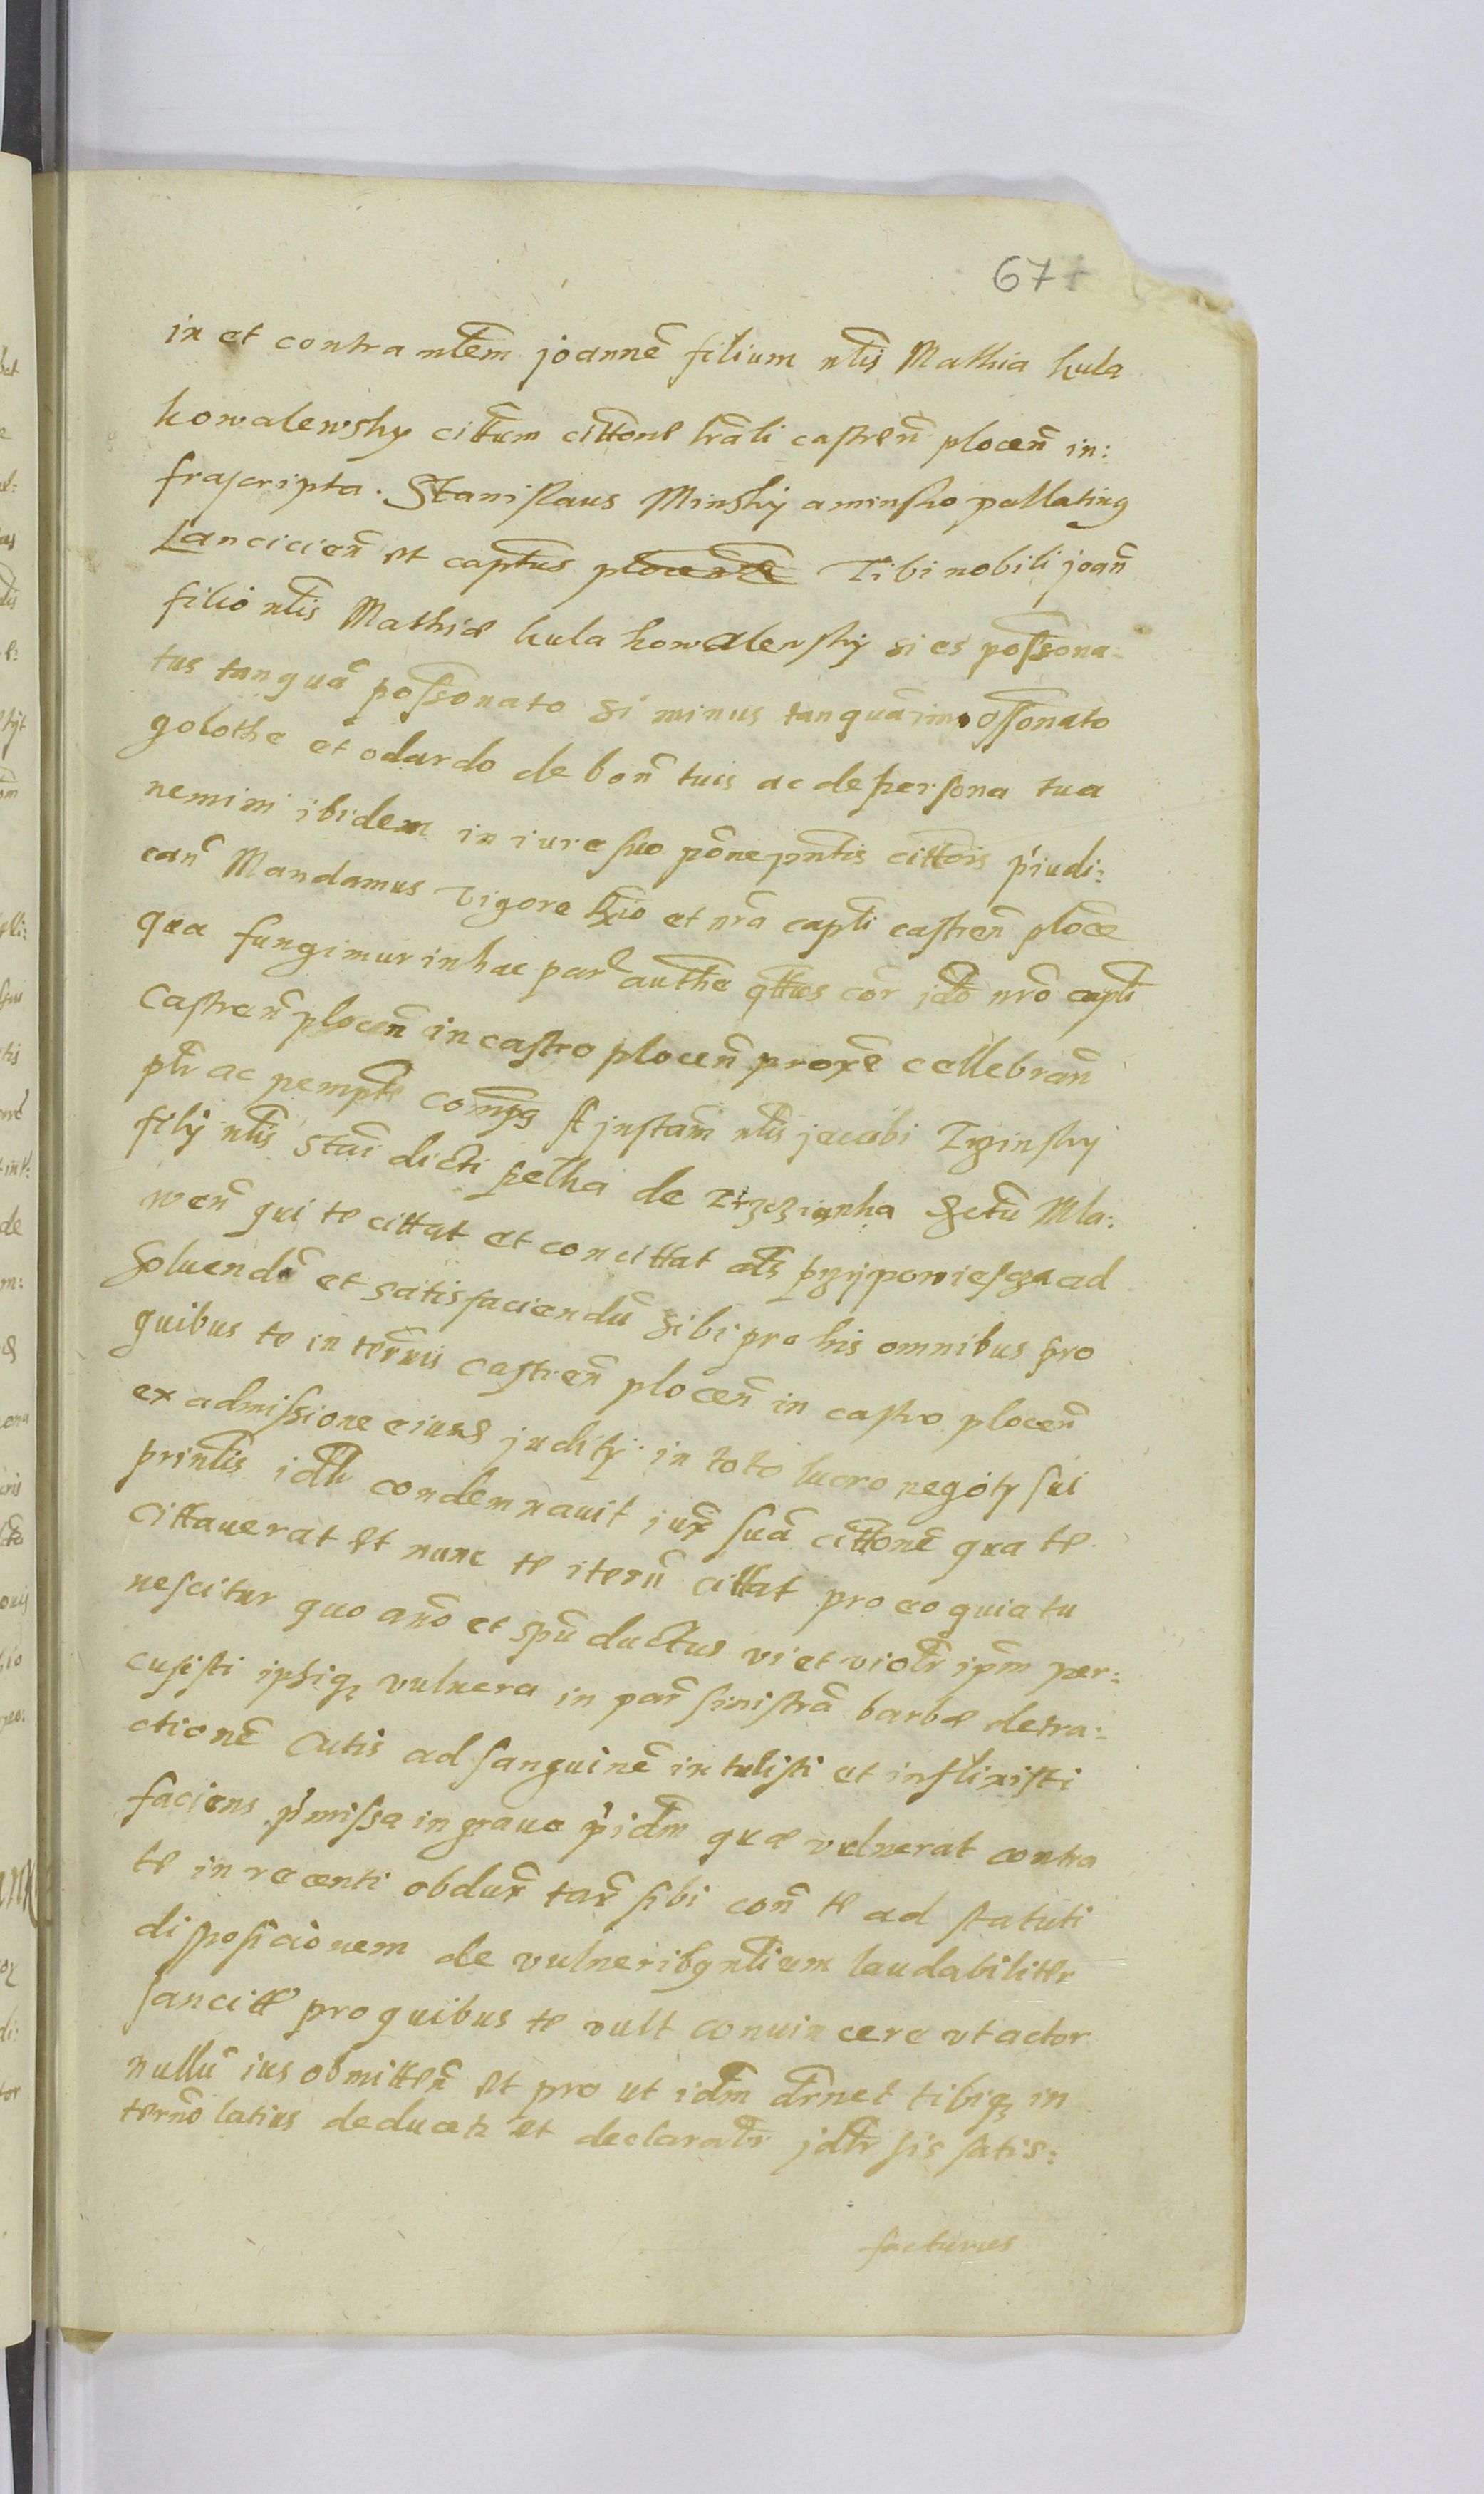 67
in et contra nlem joannē filium nlis Mathia kula
kowalewsky cittum cittone lrali castreñ ploceñ in:
frascripta. Stanislaus Minsky a minsko pallatinus
Lancicieñ et captus Tibi nobili joañ
filio nlis Mathiæ kula kowalensky si es possona-
tus tanquā possonato si minus tanquā impossonato
golothe et odardo de boñ tuis ac de persona tua
nemini ibidem in iure suo pōne pntis cittōis p̄iudi:
cañ Mandamus Vigore et nrā capli castreñ ploce
qua fungimur in hac par authe qttus cor jdō nrō capli
Castreñ ploceñ in castro ploceñ proxē cellebrañ
ptr ac pempte Compus jnstam nlis jacobi
filij nlis Stañ dicti pelka de Mla:
weñ qui te cittat et concittat als przypowiescza ad
soluendū et satisfaciendū sibi pro his omnibus pro
quibus te in termis castreñ ploceñ in castro ploceñ
ex admissione eiusd juditij in toto lucro negotij sui
prinlis idtr condemnauit jux suā cittonē qua te
cittauerat et nunc te iterū cittat pro eo quia tu
nescitur quo anō et spū ductus vi et violtr ipm per:
cusisti ipsiq vulnera in par sinistrā barbæ detra:
ctionē Cutis ad sanguinē intulisti et inflixisti
faciens p̄missa in graue p̄idm quæ vulnerat contra
te in recenti obdux tax sibi coñ te ad statuti
disposicionem de vulneribq nlium laudabiliter
sancitt pro quibus te vult conuincere vt actor
nullū ius obmitteñ et pro ut idm dr̄net tibiq in
termō latius deducetr et declarabr jdtr sis satis:
facturus